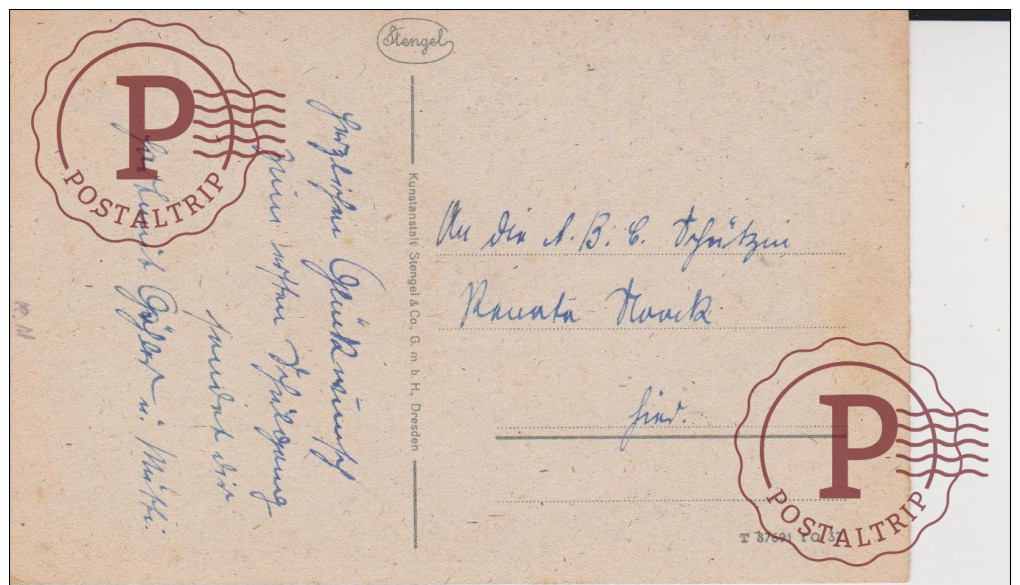 Stengel
Herzlichen Glückwunsch
zum ersten Schulgang
sendet dir
u. Mutti.
Kunstanstalt Stengel & Co., G. m. b. H., Dresden
An die A. B. C. Schützin
Renate Noack
hier.
P
POSTALTRIP
P
POSTALTRIP
T 87691